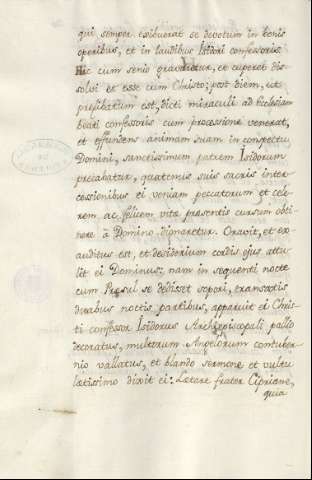 qui semper exibuerat se devotum in bonis
operibus, et in laudibus Isidori confessoris
Hic cum senio gravaretur, et cuperet dis-
solvi et esse cum Christo; post diem, ut
prefibitum est, dicti miraculi ad Eclesiam
beati confessoris cum processione venerat,
et effundens animam suam in conspectu
Domini, sanctissimum patrem Isidorum
precabatur, quatenus suis sacris inter-
cessionibus ei veniam peccatorum et cele-
rem ac felicem vitæ presentis cursum obti-
nere à Domino dignaretur. Oravit, et ex-
auditus est, et desiderium cordis ejus attu-
lit ei Dominus; nam in sequenti nocte
cum Præsul se dedisset sopori, transactis
duabus noctis partibus, apparuit ei Chris-
ti confessor Isidorus Archiepiscopali pallio
decoratus, multorum Angelorum contuber-
nio vallatus, et blando sermone et vultu
lætissimo dixit ei: Letare frater Cipriane,
quia